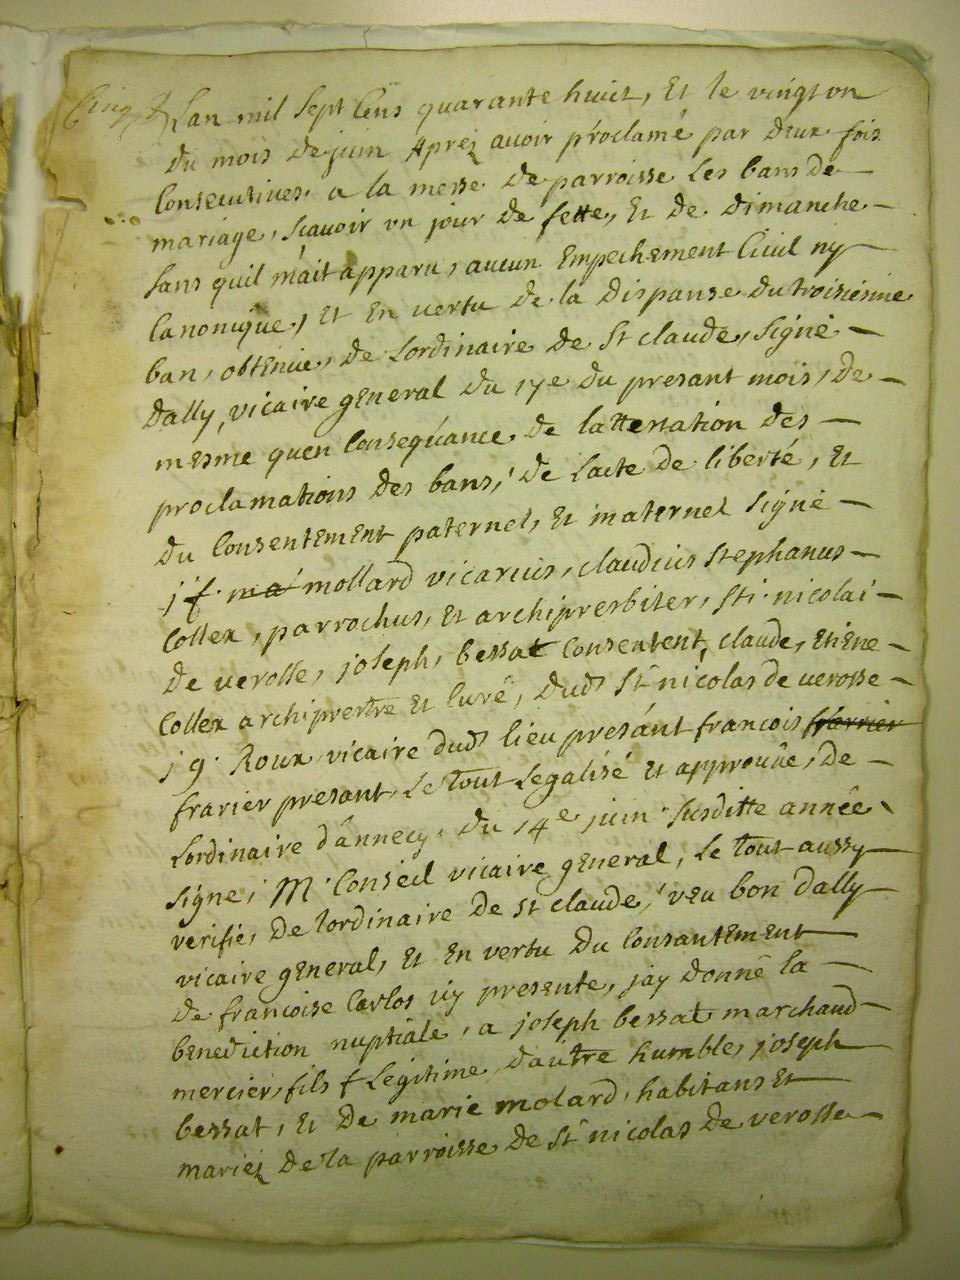 Cinq
Lan mil sept Cens quarante huict, Et le vingt vn
du mois de juin Aprez avoir proclamé par deux fois
Consecutives a la messe de parroisse Les bans de
mariage, sçavoir vn jour de fette, Et de dimanche
sans quil mait apparu, aucun Empechement Civil ny
Canonique, Et En vertu de la dispanse du troisiesme
ban, obtenue, de Lordinaire de St claude, signé
dally, vicaire general du 17e du presant mois, de
mesme quen Consequance de lattestation des
proclamations des bans, de Lacte de liberté, Et
du Consentement paternel, Et maternel signé
j f. ma mollard vicarius, claudius stephanus
Collex, parrochus, Et archiprerbiter, sti. nicolai
de verosse, joseph, bessat Consentent, claude, Etiene
Collex archipretre Et Curé, dud St nicolas de verosse
j g. Roux vicaire dud lieu presant francois frarrier
frarier presant, Le tout Legalisé Et approuûe, de
Lordinaire dânnecy, du 14e juin susditte année
signe, M. Conseil vicaire general, Le tout aussy
verifié, de lordinaire de st claude, veu bon dally
vicaire general, Et En vertu du Consantement
de francoise Carlos icy presente, jay donné la
benediction nuptiale, a joseph bessat marchand
mercier, fils f Legitime, dautre humble, joseph
bessat, Et de marie molard, habitans Et
mariez de la parroisse de St nicolas de verosse